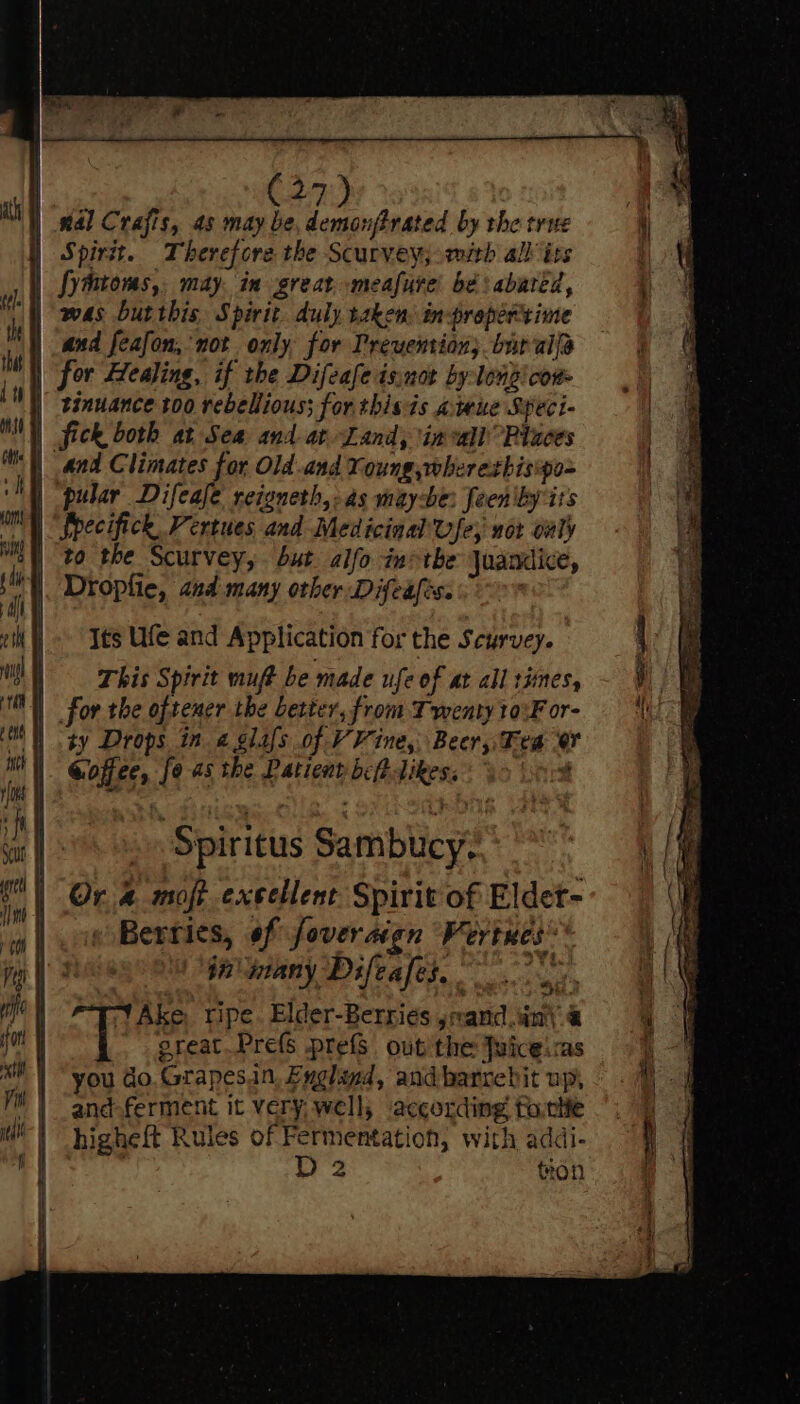 (27)
nal Crasis, as may be, demonſtrated by the true
Spirit. Therefore the Scurvey, with all its
ſymtoms, may in great meaſure be abated,
was but this Spirit duly taken in proper time
and ſeaſon, not only for Prevention, but alſo
for Healing, if the Diſeaſe is not by long con-
tinuance too rebellious; for this is a true Speci-
fick both at Sea and at Land, in all Places
and Climates for Old and Young, where this po-
pular Diſeaſe reigneth, as may be ſeen by its
ſpecifick Vertues and Medicinal Uſe, not only
to the Scurvey, but alſo in the Juandice,
Dropſie, and many other Diſeaſes.
Its Uſe and Application for the Scurvey.
This Spirit muſt be made uſe of at all times,
for the oftener the better, from Twenty to For-
ty Drops in a glaſs of VVine, Beer, Tea or
Coffee, ſo as the Patient beſt likes.
Spiritus Sambucy.
Or a moſt excellent Spirit of Elder-
Berries, of ſoveraign Vertues
in many Diſeaſes.
TAke ripe Elder-Berries, and in a
great Preſs preſs out the Juice as
you do Grapes in England, and barrel it up,
and ferment it very well, according to the
higheſt Rules of Fermentation, with addi-
D 2
tion